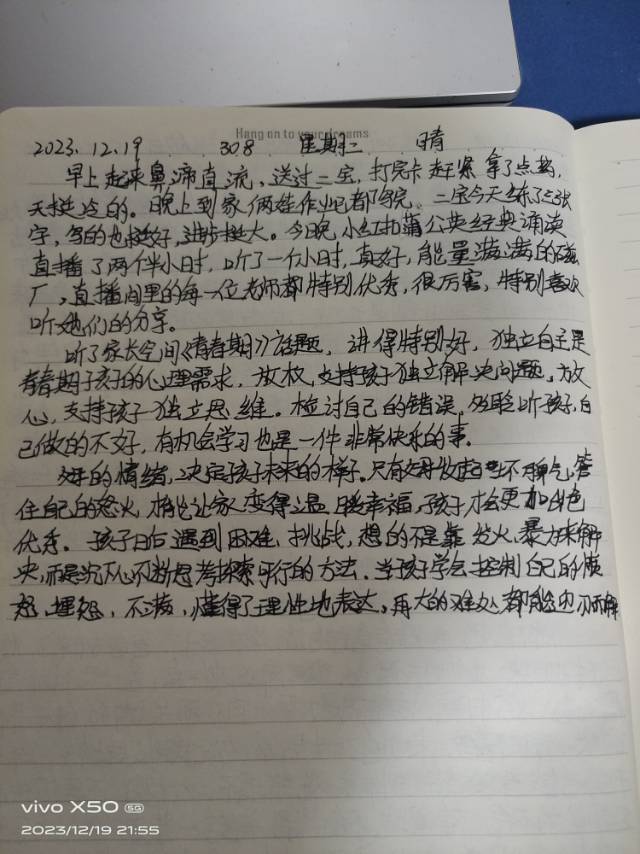 Hang on to your dreams
2023.12.19 308 星期二 晴
早上起来鼻涕直流,送过二宝,打完卡赶紧拿了点药,
天挺冷的。晚上到家俩娃作业都写完,二宝今天练了三张
字,写的也挺好,进步挺大。今晚,小红和蒲公英经典诵读
直播了两个半小时,听了一个小时,真好,能量满满的磁
厂,直播间里的每一位老师都特别优秀,很厉害,特别喜欢
听她们的分享。
听了家长空间《青春期》话题,讲得特别好,独立自主是
青春期孩子的心理需求,放权,支持孩子独立解决问题,放
心,支持孩子独立思维。检讨自己的错误,多聆听孩子,自
己做的不好,有机会学习也是一件非常快乐的事。
父母的情绪,决定孩子未来的样子。只有父母收起坏脾气,管
住自己的怒火,才能让家变得温暖幸福,孩子才会更加出色
优秀。孩子日后遇到困难、挑战,想的不是靠发火、暴力来解
决,而是沉下心不断思考探索可行的方法。当孩子学会控制自己的愤
怒、埋怨、不满,懂得了理性地表达,再大的难处都能迎刃而解
vivo X50 5G
2023/12/19 21:55